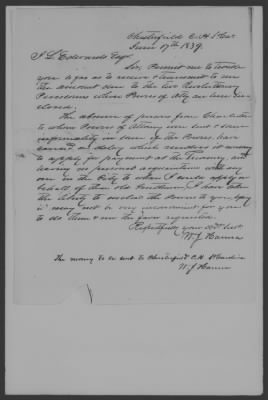 Chesterfield C. H. So. Ca.
June 17th 1839.
J L Edwards Esqr.
Sir, Permit me to trouble
you so far as to receive & transmit to me
the amount due to the two Revolutionary
Pensioners whose Powers of Atty are here in
closed.
The absence of from Charleston
to whom Powers of Attorney were sent & some
informality in one of the Powers, have
caused a delay which renders it necessary
to apply for payment at the Treasury, and
having no personal acquaintance with any
one in the City to whom I could apply in
behalf of these old Gentlemen, I have taken
the liberty to enclose the Powers to you, hoping
it may not be very inconvenient for you
to do them & me the favor requested.
Respectfully your obt Servt
W. J. Hanna
The money to be sent to Chesterfield C. H. So Carolina
W. J. Hanna